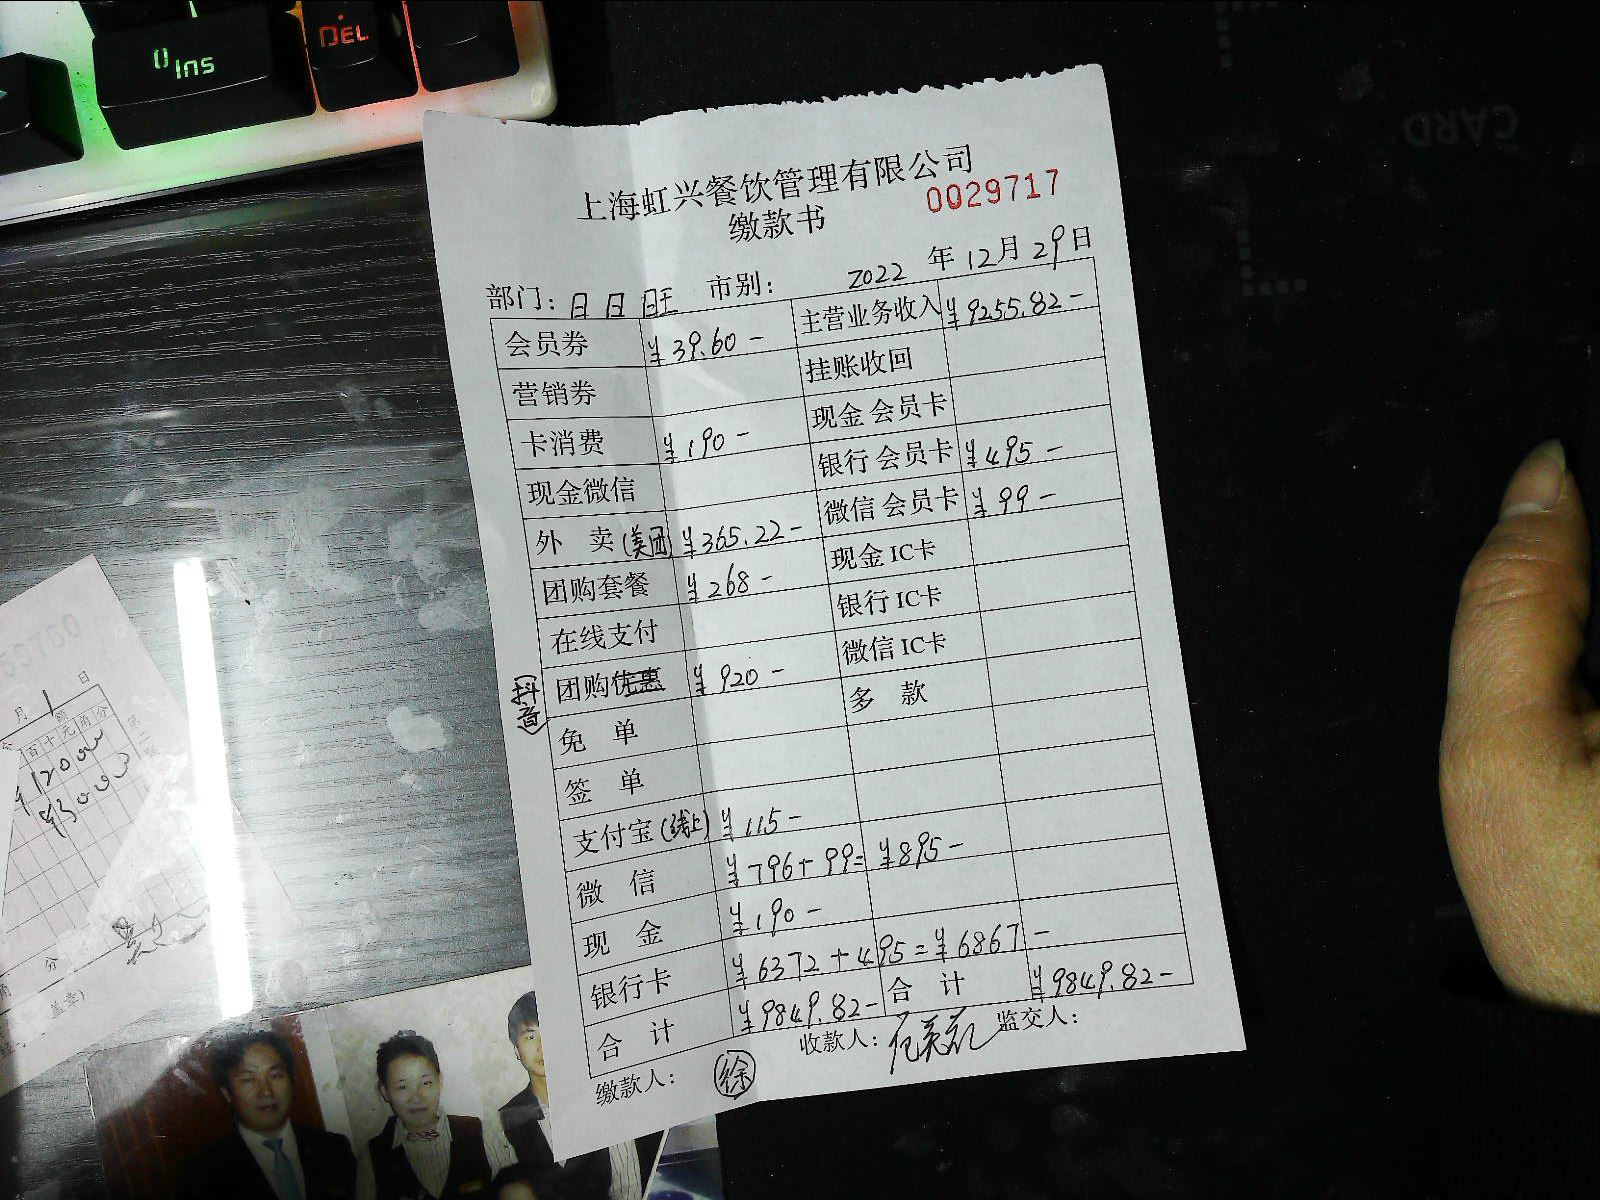 0 Ins
DEL
CARD
上海虹兴餐饮管理有限公司
缴款书
0029717
部门: 日日旺 市别: 2022 年 12 月 29 日
会员券 ¥39.60- 主营业务收入 ¥9255.82-
营销券 挂账收回
卡消费 ¥190- 现金会员卡
现金微信 银行会员卡 ¥495-
外 卖(美团) ¥365.22- 微信会员卡 ¥99-
团购套餐 ¥268- 现金IC卡
在线支付 银行IC卡
(抖音) 团购优惠 ¥920- 微信IC卡
免 单 多 款
签 单
支付宝(线上) ¥115-
微 信 ¥796+99=¥895-
现 金 ¥190-
银行卡 ¥6372+495=¥6867-
合 计 ¥9849.82- 合 计 ¥9849.82-
缴款人: 徐 收款人: 监交人:
月 1 日
百十元角分
第二联
分
盖章)